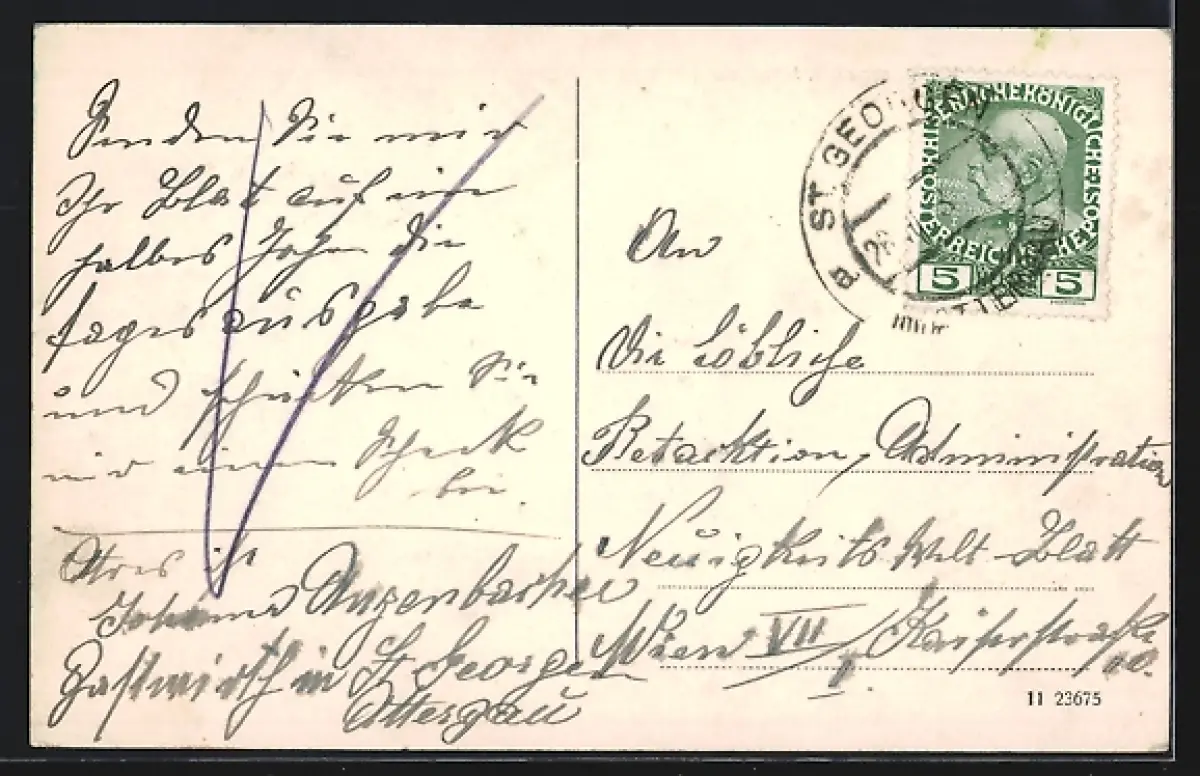 Senden Sie mir
Ihr Blat auf ein
halbes Jahr die
tages ausgabe
und schicken Sie
mir einen Scheck
bei.
Adres ist
Johann
Gastwirth in St Georgen
Attergau
ST. GEORGEN
KAISERLICHE KÖNIGLICHE
ÖSTERREICHISCHE POST
5 5
An
die löbliche
Retacktion, Administration
Neuigkeits Welt-Blatt
Wien VII Kaiserstraße
11 23675